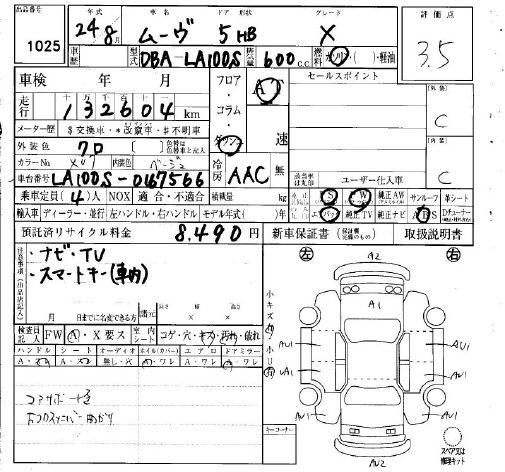 出品番号 1025
年式 24年8月
車名 ムーヴ
ドア 形状 5HB
グレード X
評価点 3.5
車歴
型式 DBA-LA100S
排気量 600 c.c.
燃料 ガソリン・( )・軽油
車検 年 月
フロア・コラム・ダウン
AT 速
セールスポイント
外装 C
走行 132604 km
メーター歴 $交換車・*改竄車・#不明車
外装色 クロ
カラーNo. X07 内装色 ベージュ
内装 C
車台番号 LA100S-0167566
冷房 AAC 無
ユーザー仕入車
乗車定員(4)人 NOX 適合・不適合 積載量 kg
PS PW 純正AW サンルーフ 革シート
輸入車 ディーラー・並行 左ハンドル・右ハンドル モデル年式( )年
エアバッグ 純正TV 純正ナビ ABS Dチューナー
預託済リサイクル料金 8,490円
新車保証書 取扱説明書
・ナビ・TV
・スマートキー(車内)
左 右
月 日までに名変できる方
諸元 長さ 幅 高さ
小キズ 小U
検査員記入 FW A・X要ス 室内シート コゲ・穴・キズ・汚れ・傷れ
ハンドル シート オーディオ ホイル(カバー) エアロ ドアミラー
A・ス 無し・穴 A・ワレ A・ワレ A・ワレ
コアサポート
キーコーナー
A2
A1
AU1 AU1
UA1 AU1
AU1 AU1
AU2
スペア又は修理キット